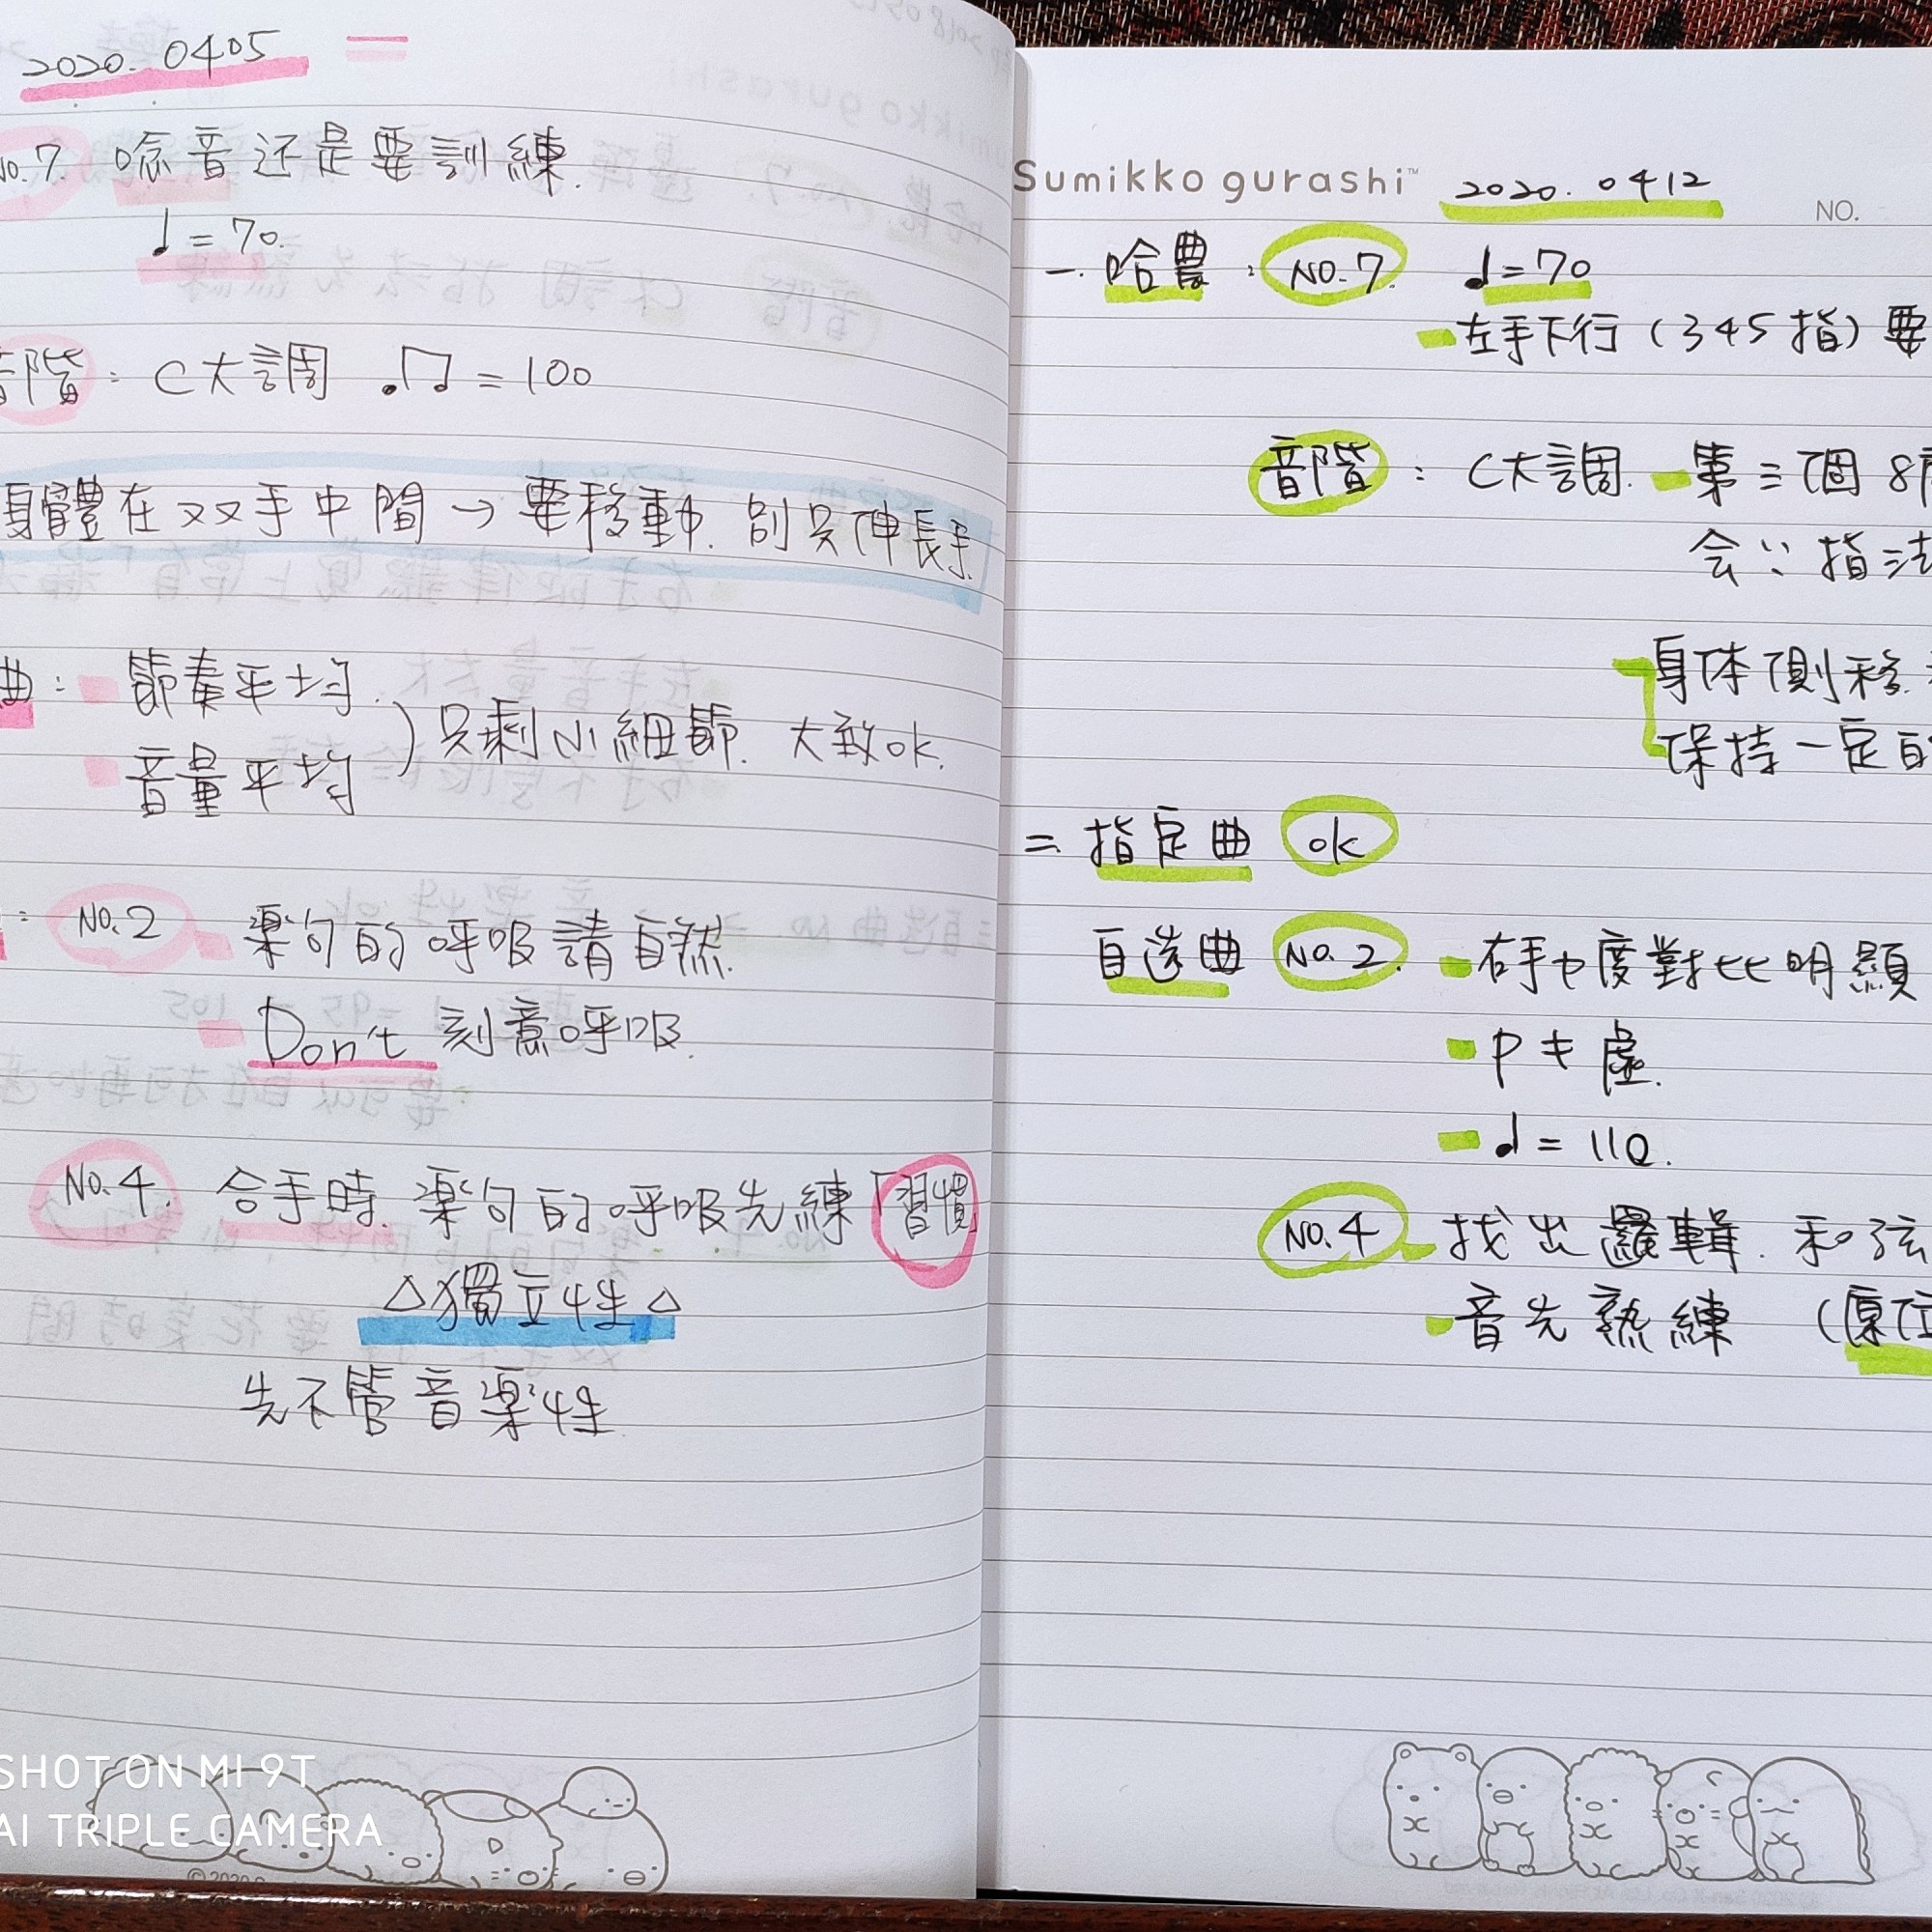 2020. 0405
No.7. 唸音还是要訓練.
♩=70.
音階: C大調 .♫=100
身體在双手中間→要移動. 別只伸長手
曲: 節奏平均.
音量平均
)只剩小細節. 大致ok.
: No.2 楽句的呼吸請自然.
Don't 刻意呼吸.
No.4. 合手時. 楽句的呼吸先練「習慣」
△獨立性△
先不管音楽性.
SHOT ON MI 9T
AI TRIPLE CAMERA
Sumikko gurashi™ 2020. 0412
NO.
一. 哈農: NO.7. ♩=70
左手下行(345指)要
音階: C大調. 第三個8度
会∵指法
身体側移.
保持一定的
二. 指定曲 ok
自选曲 No.2. 右手力度對比明顯
P≠虛.
♩=110.
No.4 找出邏輯. 和弦
音先熟練 (原位